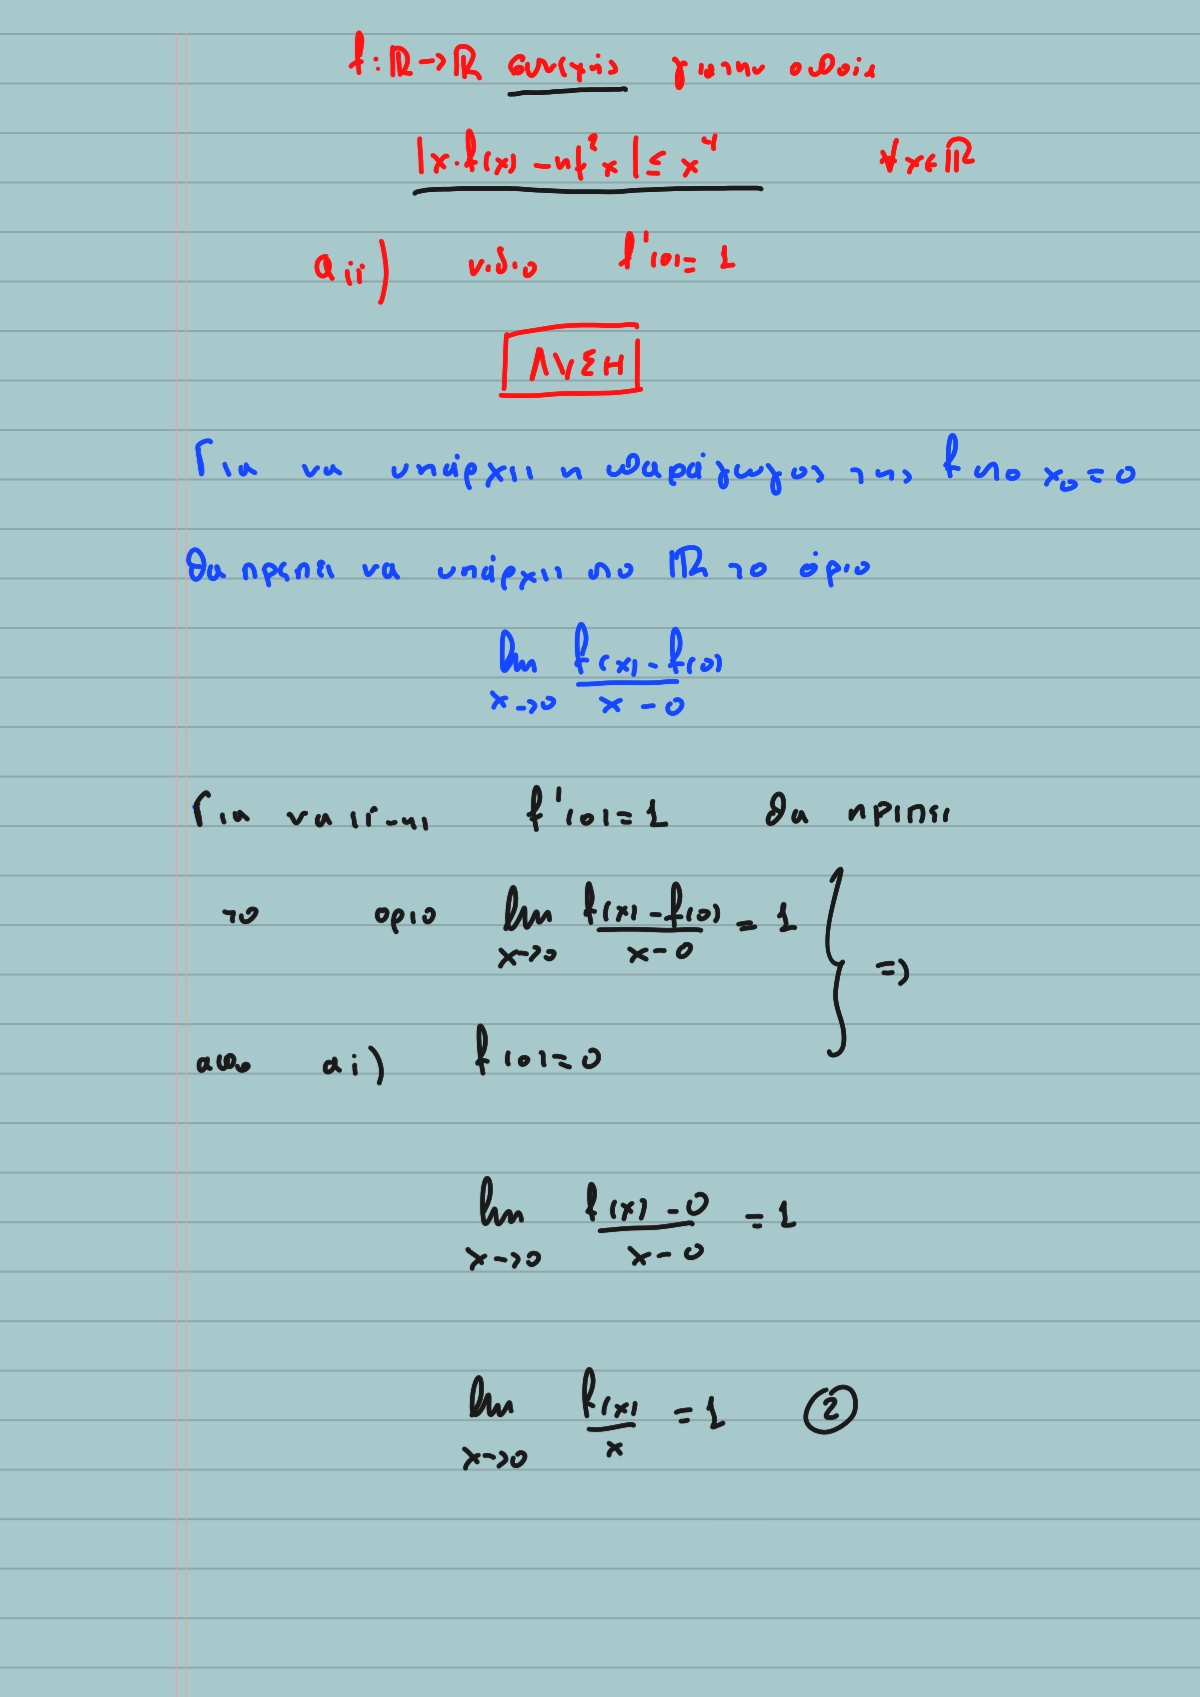 f: ℝ → ℝ συνεχής για την οποία
|x·f(x) - ημ²x| ≤ x⁴ ∀ x ∈ ℝ
αii) ν.δ.ο f'(0) = 1
ΛΥΣΗ
Για να υπάρχει η παράγωγος της f στο x₀ = 0
θα πρεπει να υπάρχει στο ℝ το όριο
lim x→0 f(x) - f(0) / x - 0
Για να είναι f'(0) = 1 θα πρεπει
το οριο lim x→0 f(x) - f(0) / x - 0 = 1 } ⇒
απο αi) f(0) = 0
lim x→0 f(x) - 0 / x - 0 = 1
lim x→0 f(x) / x = 1 ②